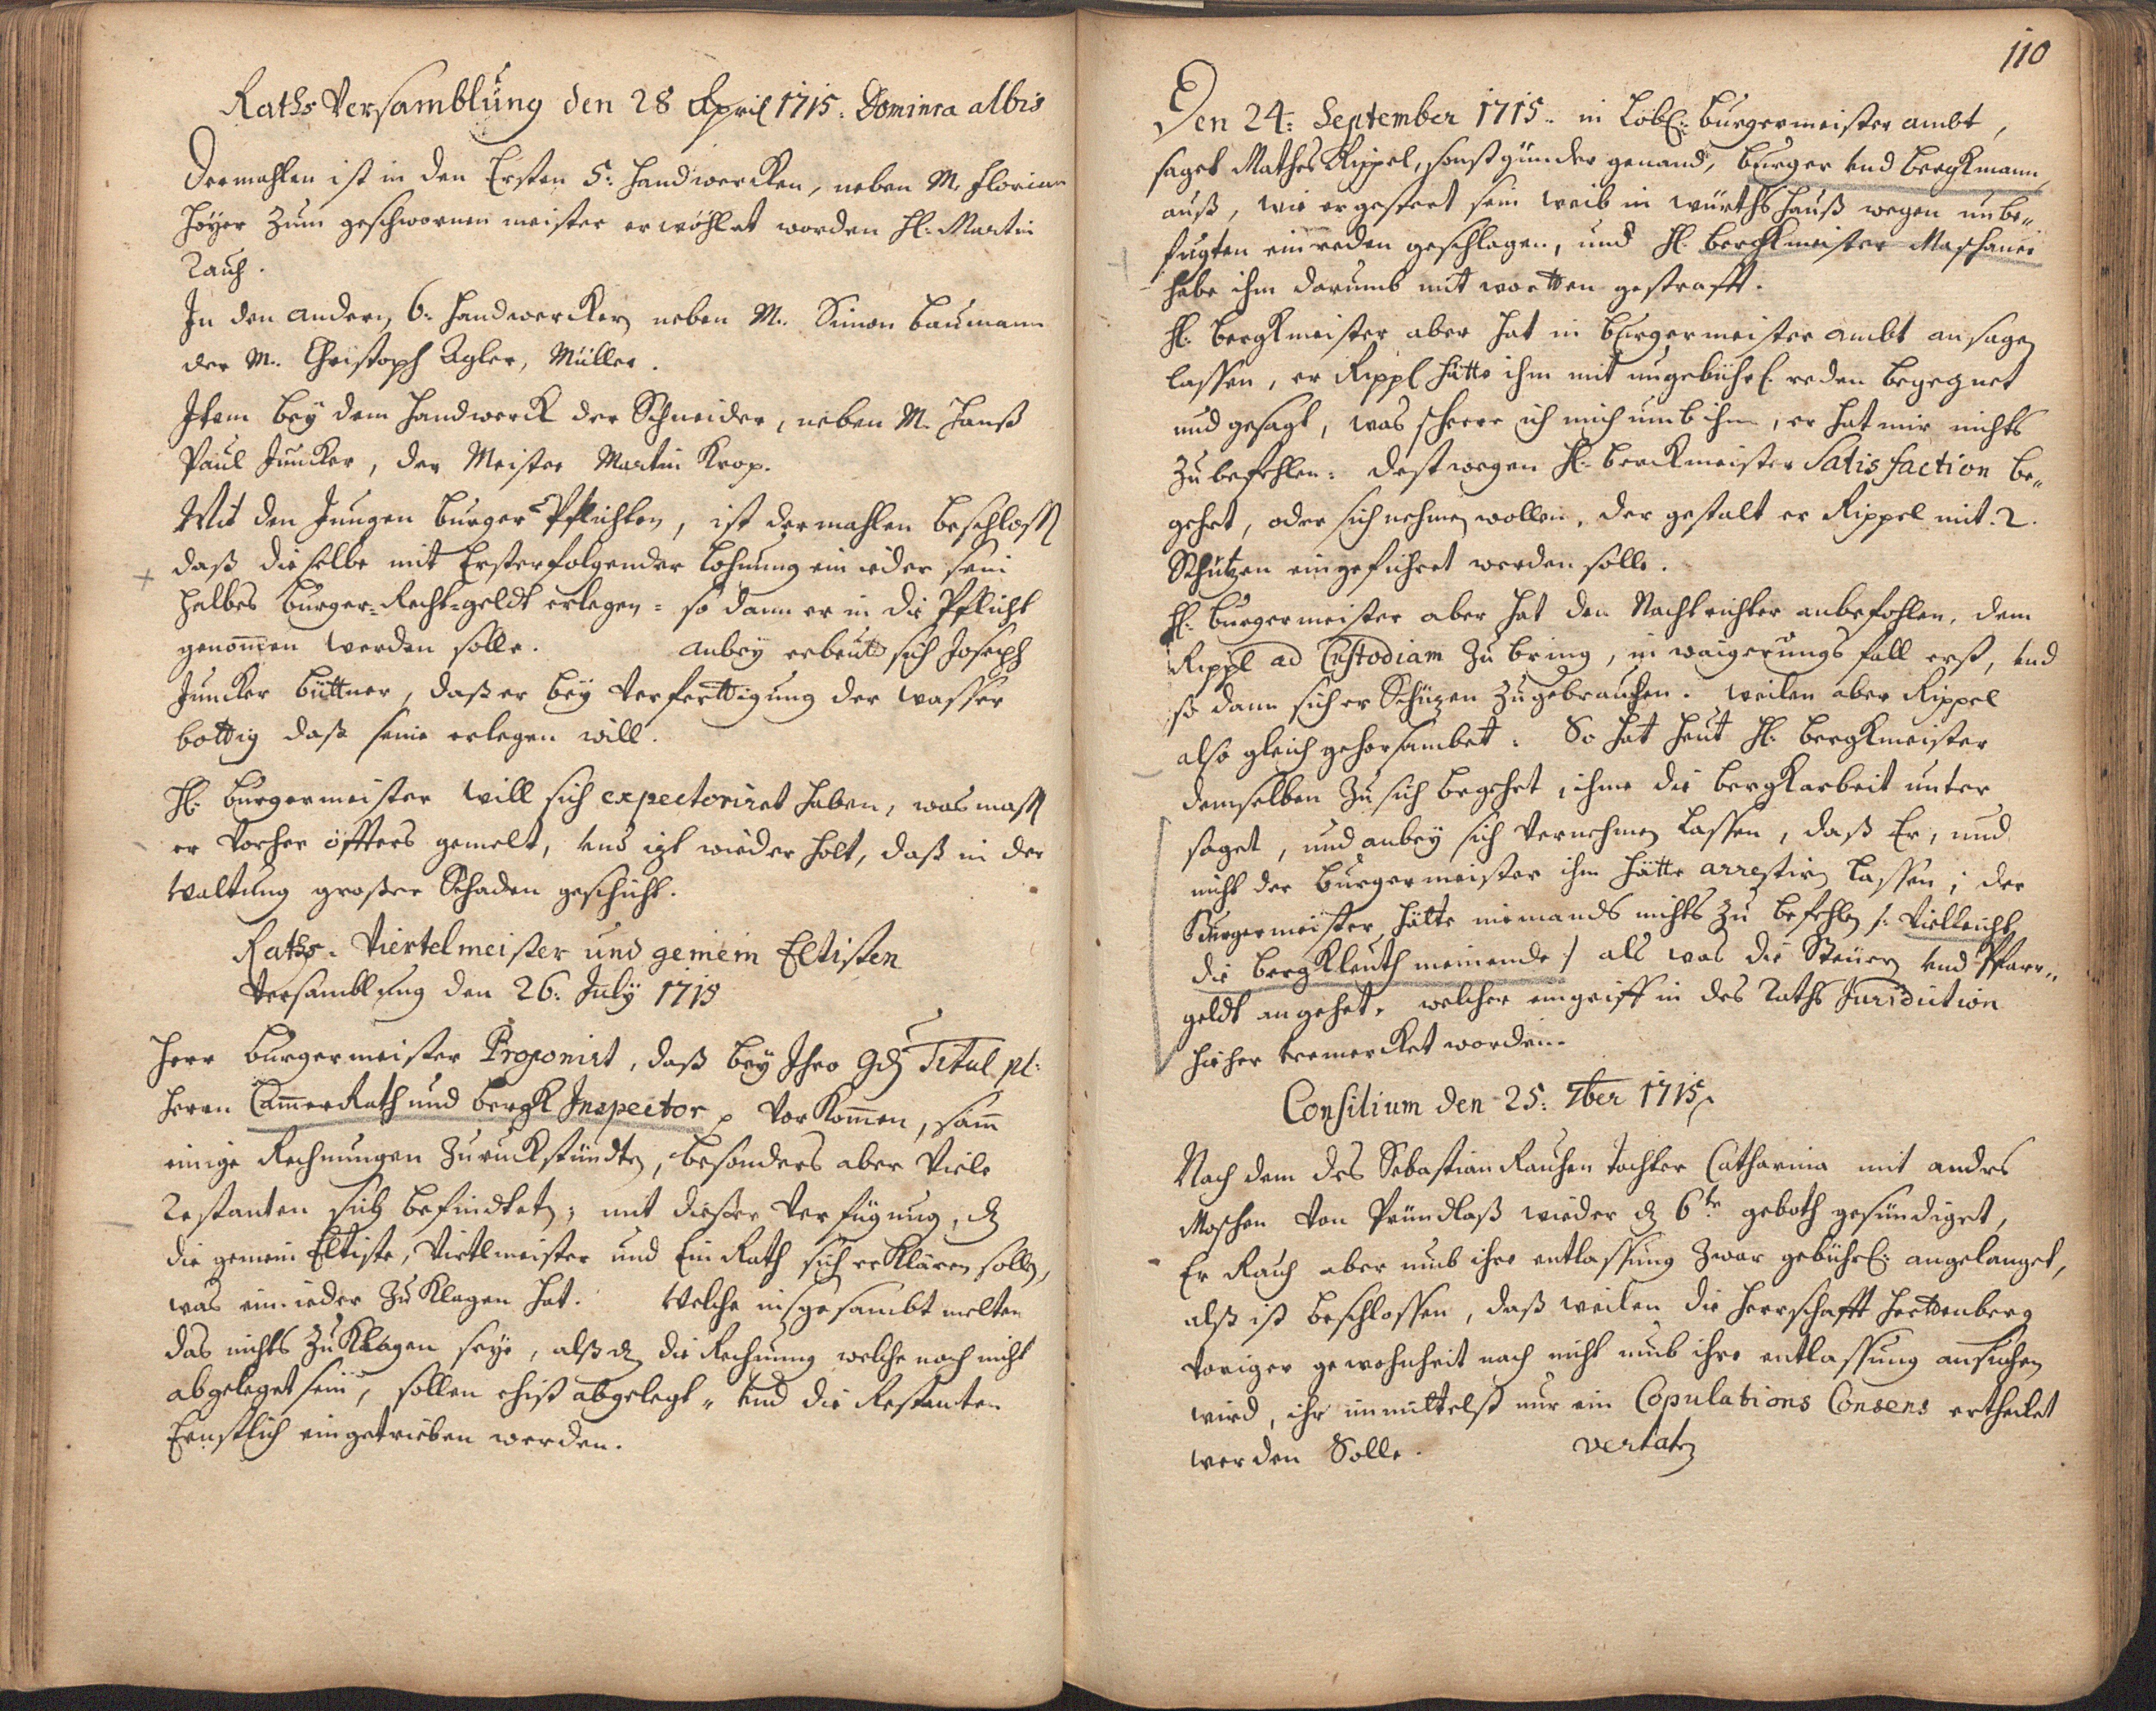 Raths Versamblung den 28 April 1715. Dominica albis
Dermahlen ist in den Ersten 5: handwercken, neben M. Florian
Höyer zum geschwornen meister erwöhlet worden H: Martin
Rauh.
In den andern 6: handwerckern neben M. Simon Baumann
der M. Christoph Egler, Müller.
Item beÿ dem handwerck der Schneider, neben M. Hanß
Paul Juncker, der Meister Martin Krop.
Mit den Jungen Burgers Pflichten, ist dermahlen beschloss
daß dieselbe mit Ersterfolgender Lohnung ein ieder sein
halbes Burger-Recht-geldt erlegen = so dann er in die Pflicht
genom̄en werden solle. anbeÿ erbeuts sich Joseph
Juncker büttner, daß er beÿ Verferttigung der wasser
bottig daß seine erlegen will.
H: Burgermeister will sich expectoriret haben, was mass
er vorher öffters gemelt, und izt wiederholt, daß in der
Waltung grosser Schaden geschicht.
Raths- Viertelmeister und gemein Eltisten
Versamblung den 26: Julÿ 1715
Herr Burgermeister Proponirt, daß beÿ Ihro Gd Titul pl:
Herrn Cam̄erRath und bergk Inspector p Vorkom̄en, sam̄
einige Rechnungen zuruckstündten, besonders aber Viele
Restanten sich befindtet; mit dießer Verfügung, dz
die gemein Eltiste, Viertlmeister und Ein Rath sich erklären solln,
was ein ieder zu klagen hat. Welche insgesambt melten
das nichts zu klagen seÿe, alß dz die Rechnung welche noch nicht
abgeleget sein, sollen ehist abgelegt = und die Restanten
Ernstlich eingetrieben werden.
110
Den 24: September 1715. in Löbl: Burgermeister ambt,
saget Mathes Rippel, sonst günder genand, burger und bergkmann
auß, wie er gestert sein weib in würthshauß wegen unbe-
fugten einreden geschlagen, und H: bergkmeister Maschauer
habe ihn darumb mit wortten gestrafft.
H: bergkmeister aber hat in Burgermeister ambt ansagen
lassen, er Rippl hätte ihm mit ungebührl: reden begegnet
und gesagt, was scheere ich mich umb ihn, er hat mir nichts
zu befehlen: destwegen H: berckmeister Satisfaction be-
gehrt, oder sich nehmen wollen, der gestalt er Rippel mit 2.
Schützen eingeführet werden solle.
H: Burgermeister aber hat den Nachtrichter anbefohlen, dem
Rippl ad Custodiam zu bring, in waigerungs fall erst, und
so dann sich er Schüzen zugebrauchen. weilen aber Rippel
also gleich gehorsambet. So hat heut H: bergkmeister
demselben zu sich begehrt, ihme die bergkarbeit unter
saget, und anbeÿ sich Vernehmen lassen, daß Er, und
nicht der Burgermeister ihn hätte arrestirn lassen; der
Burgermeister hätte niemands nichts zu befehln /: Vielleicht
die bergkleuth meinende :/ als was die Steuern und Pfarr-
geldt angehet. welcher eingriff in des Raths Juridiction
hieher bemercket worden.
Consilium den 25: 7ber 1715.
Nach dem des Sebastian Rauhen tochter Catharina mit andres
Moschen Von Pründlaß wieder dz 6te geboth gesündiget,
Er Rauh aber umb ihre entlassung zwar gebührl: angelanget,
alß ist beschlossen, daß weilen die Herrschafft Harttenberg
voriger gewohnheit nach nicht umb ihre entlassung ansuchen
wird, ihr immittelst nur ein Copulations Consens ertheilet
werden Solle. vertatr